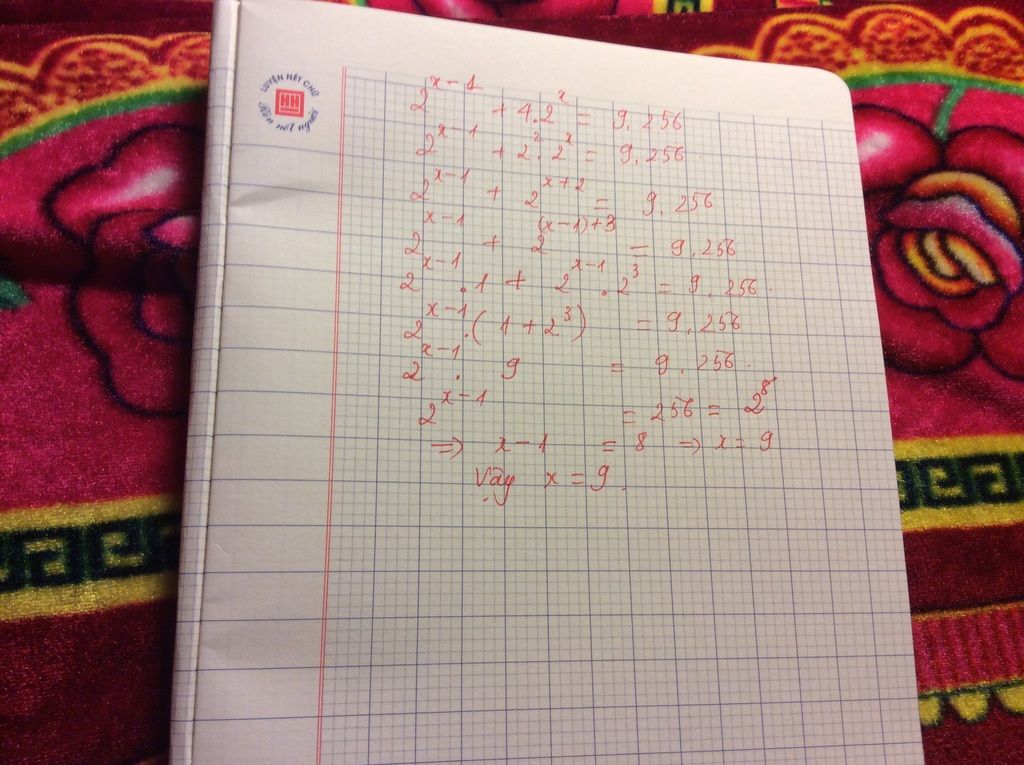 LUYỆN NÉT CHỮ
HH
Rèn nết người
2^{x-1} + 4.2^x = 9.256
2^{x-1} + 2^2.2^x = 9.256
2^{x-1} + 2^{x+2} = 9.256
2^{x-1} + 2^{(x-1)+3} = 9.256
2^{x-1}.1 + 2^{x-1}.2^3 = 9.256.
2^{x-1}.(1+2^3) = 9.256
2^{x-1}. 9 = 9.256.
2^{x-1} = 256 = 2^8
=> x-1 = 8 => x = 9
Vậy x = 9.